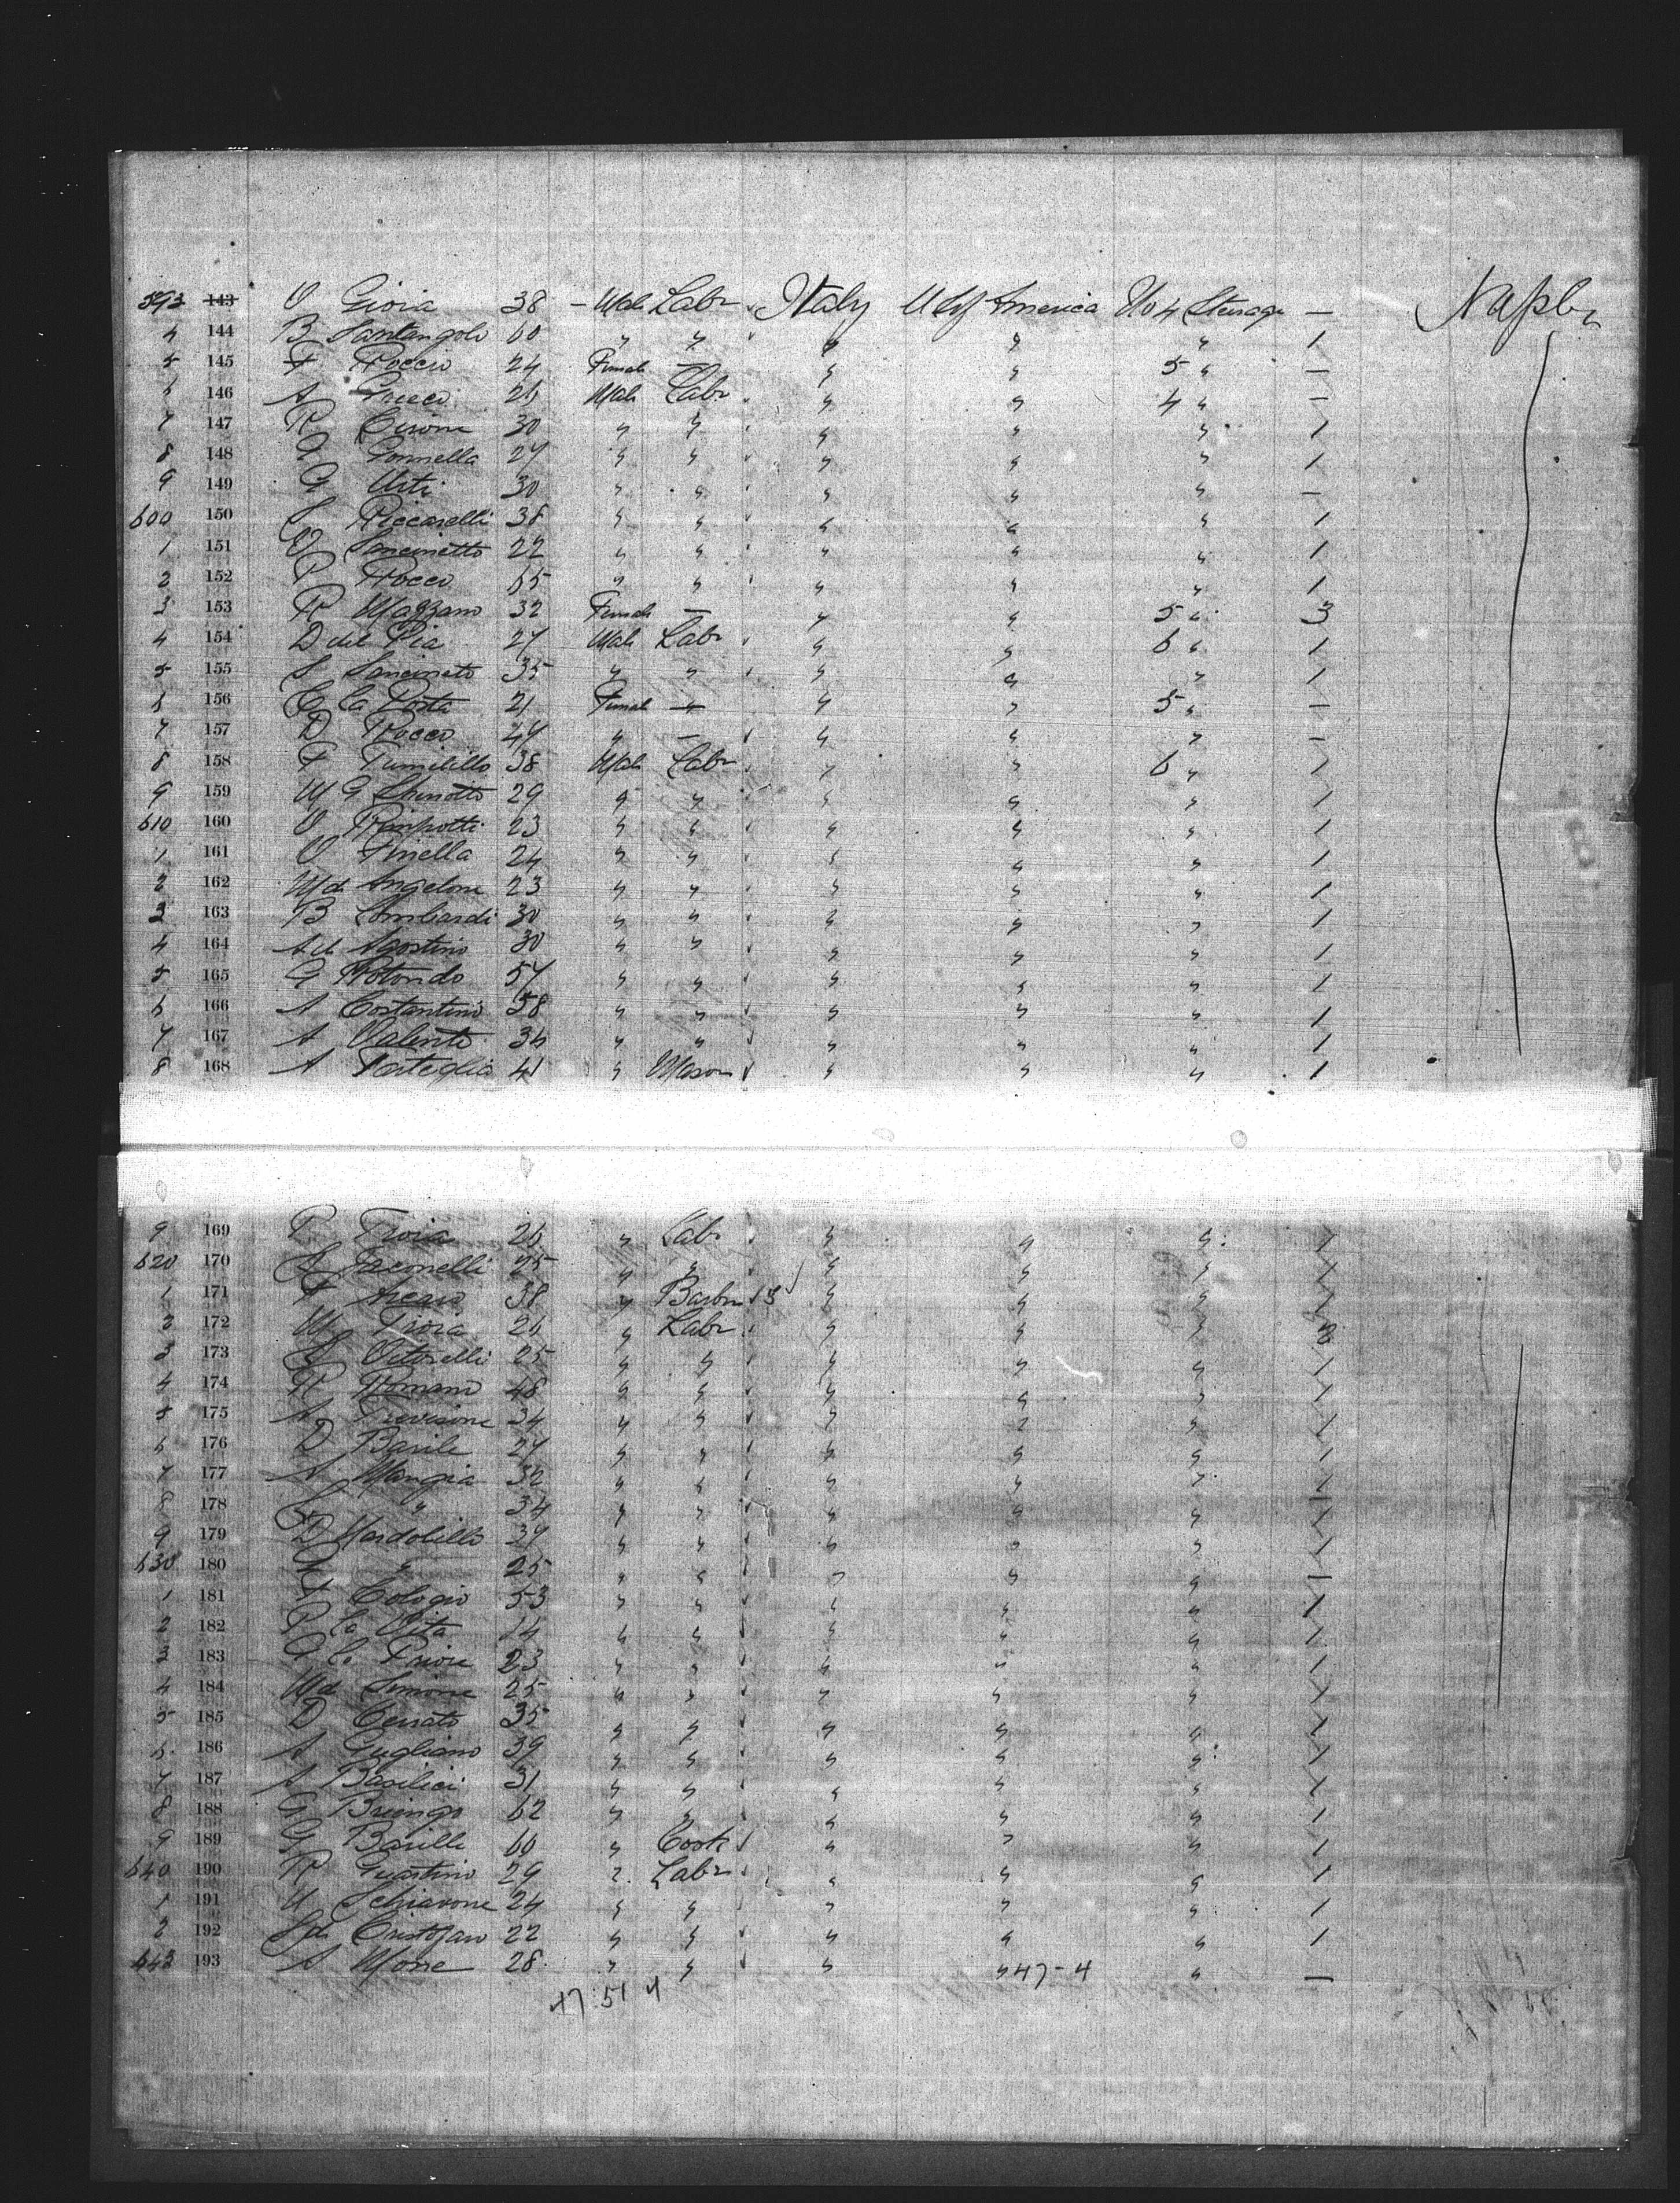 593 143 V Gioia 38 - Male Labr Italy U S of America No 4 Steerage — Naples
4 144 B Santangolo 60 " " " " " 1
5 145 F Rocco 24 Female — " " 5 " —
6 146 A Greco 26 Male Labr " " 4 " —
7 147 R Cirone 30 " " " " " 1
8 148 G Gonnella 27 " " " " " 1
9 149 G Urti 30 " " " " " —
600 150 S Riccarelli 38 " " " " " 1
1 151 V Sancinetto 22 " " " " " 1
2 152 P Rocco 65 " " " " " 1
3 153 R Mazzano 32 Female — " " 5 " 3
4 154 D del Pia 27 Male Labr " " 6 " 1
5 155 S Sancineto 35 " " " " " 1
6 156 C la Posta 21 Female — " " 5 " —
7 157 D Rocco 47 " — " " " —
8 158 F Tumilillo 38 Male Labr " " 6 " 1
9 159 29 " " " " " 1
610 160 V 23 " " " " " 1
1 161 V Finella 24 " " " " " 1
2 162 M d Angelone 23 " " " " " 1
3 163 B Lombardi 30 " " " " " 1
4 164 A d Agostino 30 " " " " " 1
5 165 G Rotondo 57 " " " " " 1
6 166 A Costantino 58 " " " " " 1
7 167 A Valente 36 " " " " " 1
8 168 A 41 " Mason " " " 1
9 169 P Troia 26 " Labr " " " 1
620 170 Iaconelli 25 " " " " " 1
1 171 F Arcaro 38 " Barber 13 " " " 1
2 172 M Troia 26 " Labr " " " 2
3 173 Vitorelli 25 " " " " " 1
4 174 R Romano 48 " " " " " 1
5 175 A Trevisone 34 " " " " " 1
6 176 D Basile 27 " " " " " 1
7 177 A Mangia 32 " " " " " 1
8 178 " 34 " " " " " 1
9 179 D Mardolillo 37 " " " " " 1
630 180 " 25 " " " " " 1
1 181 F Cologio 53 " " " " " 1
2 182 P la Vita 14 " " " " " 1
3 183 Priore 23 " " " " " 1
4 184 M d Simone 25 " " " " " 1
5 185 D Cerrato 35 " " " " " 1
6 186 A Gugliano 39 " " " " " 1
7 187 A Basilici 31 " " " " " 1
8 188 G 62 " " " " " 1
9 189 G Basille 60 " Cook " " " 1
640 190 R Guastino 29 " Labr " " " 1
1 191 U Schiavone 24 " " " " " 1
2 192 S di Cristofaro 22 " " " " " 1
643 193 A Mone 28 " " " " 47-4 " —
47 51 4